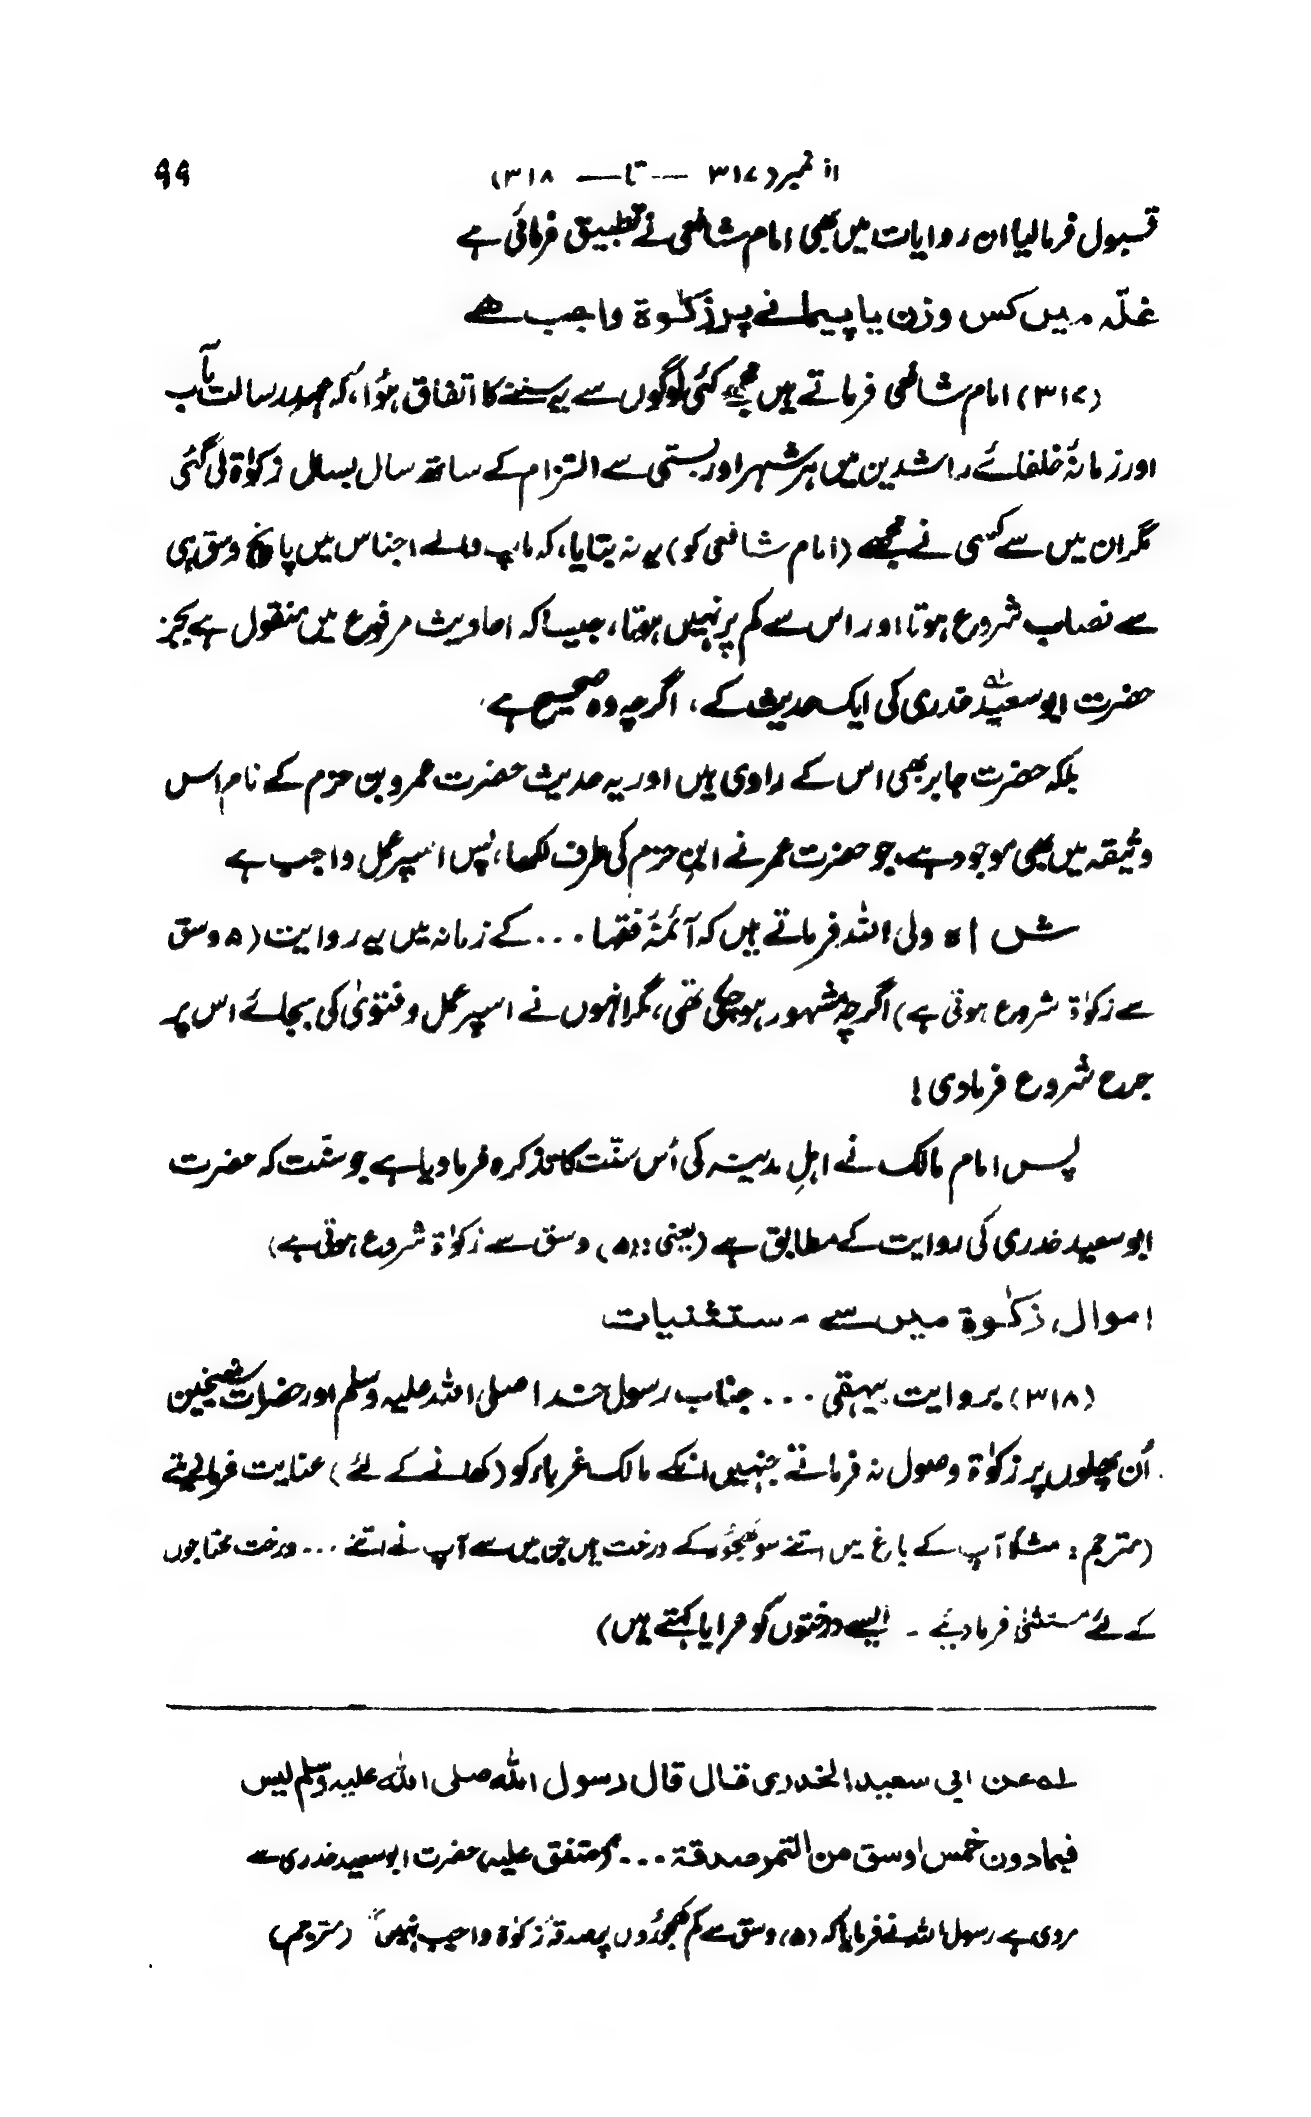 از نمبر (۳۱۷ — تا — ۳۱۸) ۹۹
قبول فرما لیا ان روایات میں بھی امام شافعی نے تطبیق فرمائی ہے
غلّہ میں کس وزن یا پیمانے پر زکوٰة واجب ہے
(۳۱۷) امام شافعی فرماتے ہیں مجھے کئی لوگوں سے یہ سننے کا اتفاق ہؤا، کہ عہد رسالت مآب
اور زمانۂ خلفائے راشدین میں ہر شہر اور بستی سے التزام کے ساتھ سال بسال زکوٰة لی گئی
مگر ان میں سے کسی نے مجھے (امام شافعی کو) یہ نہ بتایا، کہ ماپ والے اجناس میں پانچ وسق ہی
سے نصاب شروع ہوتا اور اس سے کم پر نہیں ہوتا، جیسا کہ احادیث مرفوع میں منقول ہے بجز
حضرت ابو سعیدؓ خدری کی ایک حدیث کے، اگرچہ وہ صحیح ہے
بلکہ حضرت جابر بھی اس کے راوی ہیں اور یہ حدیث حضرت عمرو بن حزم کے نام اس
وثیقہ میں بھی موجود ہے، جو حضرت عمر نے ابن حزم کی طرف لکھا، پس اسپر عمل واجب ہے
شاہ ولی اللہ فرماتے ہیں کہ آئمۂ فقہا ... کے زمانہ میں یہ روایت (۵ وسق
سے زکوٰة شروع ہوتی ہے) اگرچہ مشہور ہو چکی تھی، مگر انہوں نے اسپر عمل و فتویٰ کی بجائے اس پر
جرح شروع فرما دی!
پس امام مالک نے اہلِ مدینہ کی اُس سنّت کا تذکرہ فرما دیا ہے جو سنّت کہ حضرت
ابو سعید خدری کی روایت کے مطابق ہے (یعنی: (۵) وسق سے زکوٰة شروع ہوتی ہے)
اموال زکوٰة میں سے مستثنیات
(۳۱۸) بروایت بیہقی ... جناب رسول خدا صلی اللہ علیہ وسلم اور حضرات شیخین
اُن پھلوں پر زکوٰة وصول نہ فرماتے جنہیں انکے مالک غرباء کو (کھانے کے لئے) عنایت فرما دیتے
(مترجم: مثلاً آپ کے باغ میں اتنے سو کھجور کے درخت ہیں جن میں سے آپ نے اتنے ... درخت محتاجوں
کے لئے مستثنیٰ فرما دیئے - ایسے درختوں کو عرایا کہتے ہیں)
لہ عن ابی سعید الخدری قال قال رسول اللہ صلی اللہ علیہ وسلم لیس
فیما دون خمس اوسق من التمر صدقة ... (متفق علیہ) حضرت ابو سعید خدری سے
مروی ہے رسول اللہ نے فرمایا کہ (۵) وسق سے کم کھجوروں پر صدقۂ زکوٰة واجب نہیں" (مترجم)